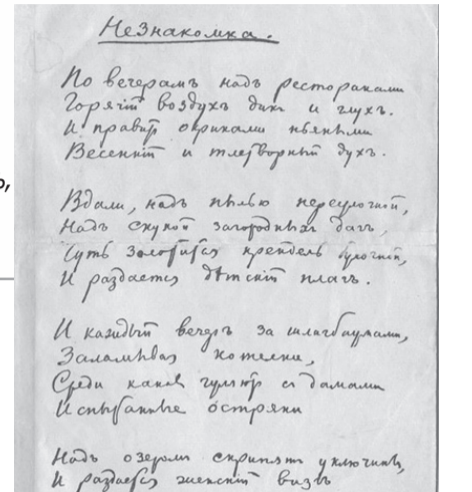 Незнакомка.
По вечерамъ надъ ресторанами
Горячій воздухъ дикъ и глухъ.
И правитъ окриками пьяными
Весенній и тлетворный духъ.
Вдали, надъ пылью переулочной,
Надъ скукой загородныхъ дачъ,
Чуть золотится крендель булочной,
И раздается дѣтскій плачъ.
И каждый вечеръ за шлагбаумами,
Заламывая котелки,
Среди канавъ гуляютъ съ дамами
Испытанные остряки
Надъ озеромъ скрипятъ уключины,
И раздается женскій визгъ
ю,